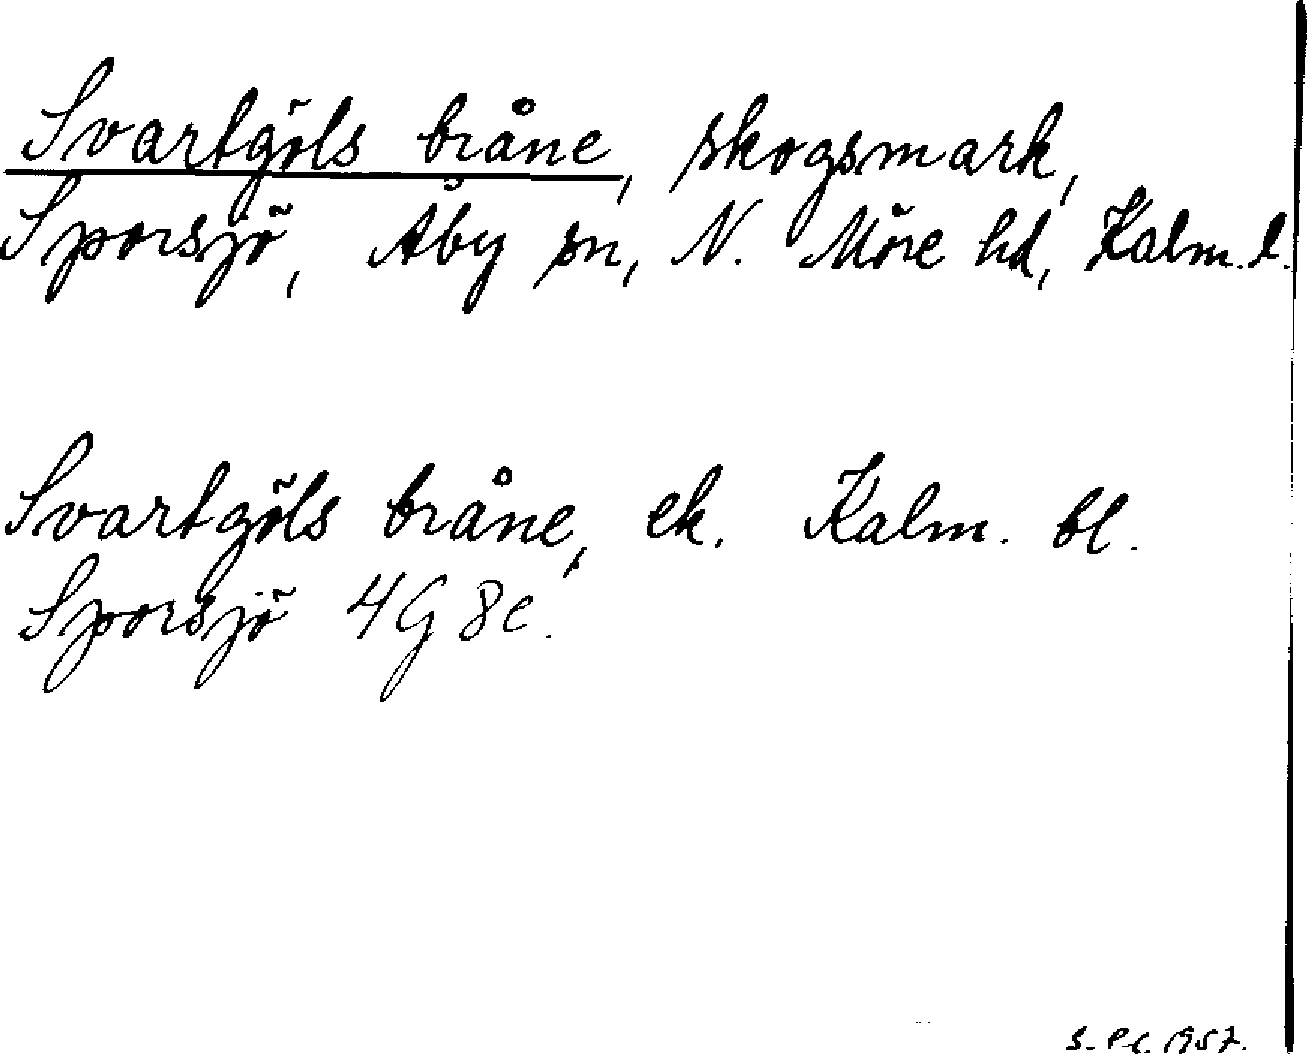 Svartgöls bråne, skogsmark,
Sporsjö, Åby sn, N. Möre hd, Kalm. l.
Svartgöls bråne, ek. Kalm. bl.
Sporsjö 4G 8c.
1957.